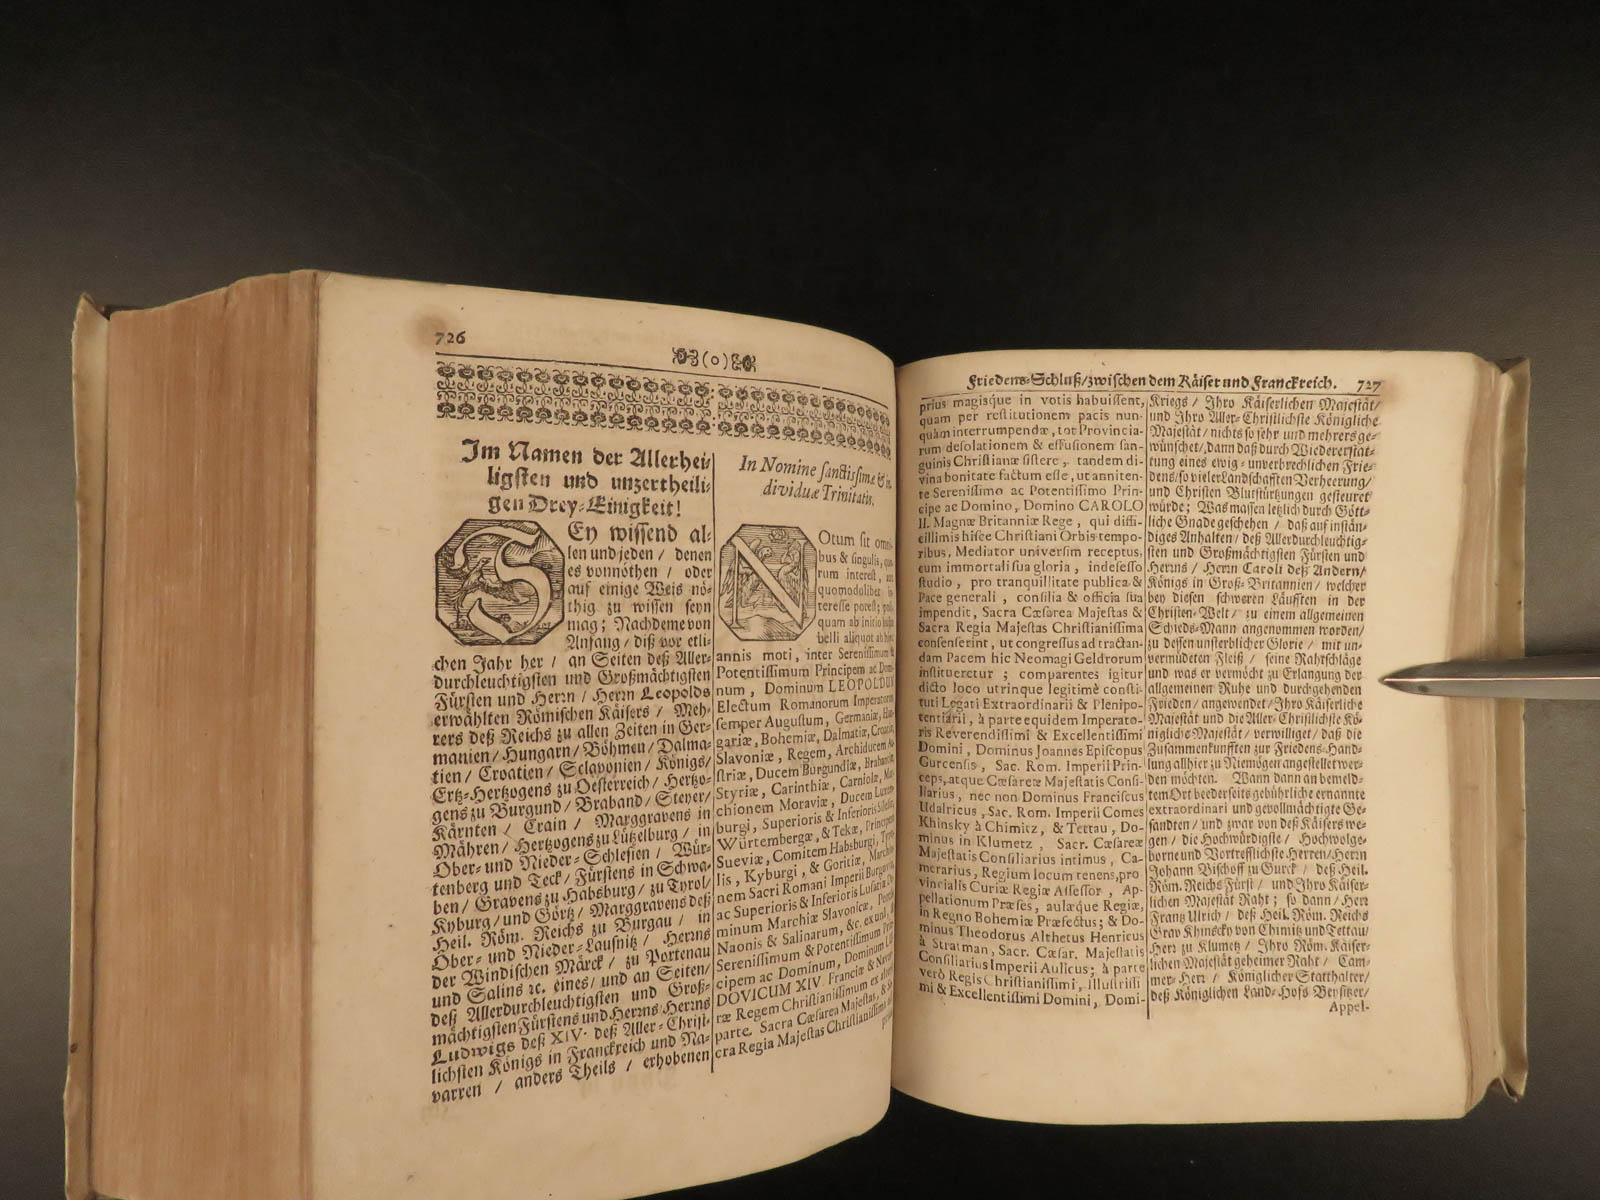 726
(o)
Im Namen der Allerhei-
ligsten und unzertheili-
gen Drey-Einigkeit!
SEy wissend al-
len und jeden / denen
es vonnöthen / oder
auf einige Weis nö-
thig zu wissen seyn
mag; Nachdeme von
Anfang / diß vor etli-
chen Jahr her / an Seiten deß Aller-
durchleuchtigsten und Großmächtigsten
Fürsten und Herrn / Herrn Leopolds
erwählten Römischen Käisers / Meh-
rers deß Reichs zu allen Zeiten in Ger-
manien / Hungarn / Böhmen / Dalma-
tien / Croatien / Sclavonien / Königs /
Ertz-Hertzogens zu Oesterreich / Hertzo-
gens zu Burgund / Braband / Steyer /
Kärnten / Crain / Marggravens in
Mähren / Hertzogens zu Lützelburg / in
Ober- und Nieder-Schlesien / Wür-
tenberg und Teck / Fürstens in Schwa-
ben / Gravens zu Habsburg / zu Tyrol /
Kyburg / und Görtz / Marggravens deß
Heil. Röm. Reichs zu Burgau / in
Ober- und Nieder-Lausnitz / Herrns
der Windischen Märck / zu Portenau
und Salins ꝛc. eines / und an Seiten /
deß Allerdurchleuchtigsten und Groß-
mächtigsten Fürstens und Herrns Herrns
Ludwigs deß XIV. deß Aller-Christ-
lichsten Königs in Franckreich und Na-
varren / anders Theils / erhobenen
In Nomine sanctissimæ & in-
dividuæ Trinitatis.
NOtum sit omni-
bus & singulis, quo-
rum interest, aut
quomodolibet in-
teresse potest; post-
quam ab initio hujus
belli aliquot ab hinc
annis moti, inter Serenissimum &
Potentissimum Principem ac Domi-
num, Dominum LEOPOLDUM
Electum Romanorum Imperatorem
semper Augustum, Germaniæ, Hun-
gariæ, Bohemiæ, Dalmatiæ, Croatiæ,
Slavoniæ, Regem, Archiducem Au-
striæ, Ducem Burgundiæ, Brabantiæ,
Styriæ, Carinthiæ, Carniolæ, Mar-
chionem Moraviæ, Ducem Luxem-
burgi, Superioris & Inferioris Silesiæ,
Würtembergæ, & Tekæ, Principem
Sueviæ, Comitem Habsburgi, Tyro-
lis, Kyburgi, & Goritiæ, Marchio-
nem Sacri Romani Imperii Burgoviæ,
ac Superioris & Inferioris Lusatiæ, Do-
minum Marchiæ Slavonicæ, Portus
Naonis & Salinarum, &c. ex una, &
Serenissimum & Potentissimum Prin-
cipem ac Dominum, Dominum LU-
DOVICUM XIV. Franciæ & Navar-
ræ Regem Christianissimum ex altera
parte. Sacra Cæsarea Majestas, & Sa-
cra Regia Majestas Christianissima
Friedens-Schluß / zwischen dem Käiser und Franckreich. 727
prius magisque in votis habuissent,
quam per restitutionem pacis nun-
quàm interrumpendæ, tot Provincia-
rum desolationem & effusionem san-
guinis Christianæ sistere, tandem di-
vina bonitate factum esse, ut anniten-
te Serenissimo ac Potentissimo Prin-
cipe ac Domino, Domino CAROLO
II. Magnæ Britanniæ Rege, qui diffi-
cillimis hisce Christiani Orbis tempo-
ribus, Mediator universim receptus,
cum immortali sua gloria, indefesso
studio, pro tranquillitate publica &
Pace generali, consilia & officia sua
impendit, Sacra Cæsarea Majestas &
Sacra Regia Majestas Christianissima
consenserint, ut congressus ad tractan-
dam Pacem hic Neomagi Geldrorum
institueretur; comparentes igitur
dicto loco utrinque legitimè consti-
tuti Legati Extraordinarii & Plenipo-
tentiarii, à parte equidem Imperato-
ris Reverendissimi & Excellentissimi
Domini, Dominus Joannes Episcopus
Gurcensis, Sac. Rom. Imperii Prin-
ceps, atque Cæsareæ Majestatis Consi-
liarius, nec non Dominus Franciscus
Udalricus, Sac. Rom. Imperii Comes
Khinsky à Chimitz, & Tettau, Do-
minus in Klumetz, Sacr. Cæsareæ
Majestatis Consiliarius intimus, Ca-
merarius, Regium locum tenens, pro
vincialis Curiæ Regiæ Assessor, Ap-
pellationum Præses, aulæque Regiæ,
in Regno Bohemiæ Præfectus; & Do-
minus Theodorus Althetus Henricus
à Stratman, Sacr. Cæsar. Majestatis
Consiliarius Imperii Aulicus; à parte
verò Regis Christianissimi, illustrissi
mi & Excellentissimi Domini, Domi-
Kriegs / Ihro Käiserlichen Majestät /
und Ihro Aller-Christlichste Königliche
Majestät / nichts so sehr und mehrers ge-
wünschet / dann daß durch Wiedererstat-
tung eines ewig-unverbrechlichen Frie-
dens / so vieler Landschafften Verheerung /
und Christen Blutstürtzungen gesteuret
würde; Was massen letzlich durch Gött-
liche Gnade geschehen / daß auf instän-
diges Anhalten / deß Allerdurchleuchtig-
sten und Großmächtigsten Fürsten und
Herrns / Herrn Caroli deß Andern /
Königs in Groß-Britannien / welcher
bey diesen schweren Läufften in der
Christen-Welt / zu einem allgemeinen
Schieds-Mann angenommen worden /
zu dessen unsterblicher Glorie / mit un-
vermüdeten Fleiß / seine Rahtschläge
und was er vermöcht zu Erlangung der
allgemeinen Ruhe und durchgehenden
Frieden / angewendet / Ihro Käiserliche
Majestät und die Aller-Christlichste Kö-
nigliche Majestät / verwilliget / daß die
Zusammenkunfften zur Friedens-Hand-
lung allhier zu Niemögen angestellet wer-
den möchten. Wann dann an bemeld-
tem Ort beederseits gebührliche ernannte
extraordinari und gevollmächtigte Ge-
sandten / und zwar von deß Käisers we-
gen / die Hochwürdigste / Hochwolge-
borne und Vortrefflichste Herren / Herrn
Johann Bischoff zu Gurck / deß Heil.
Röm. Reichs Fürst / und Ihro Käiser-
lichen Majestät Raht; so dann / Herr
Frantz Ulrich / deß Heil. Röm. Reichs
Grav Khinscky von Chimitz und Tettau /
Herr zu Klumetz / Ihro Röm. Käiser-
lichen Majestät geheimer Raht / Cam-
mer-Herr / Königlicher Statthalter /
deß Königlichen Land-Hofs Beysitzer /
Appel-